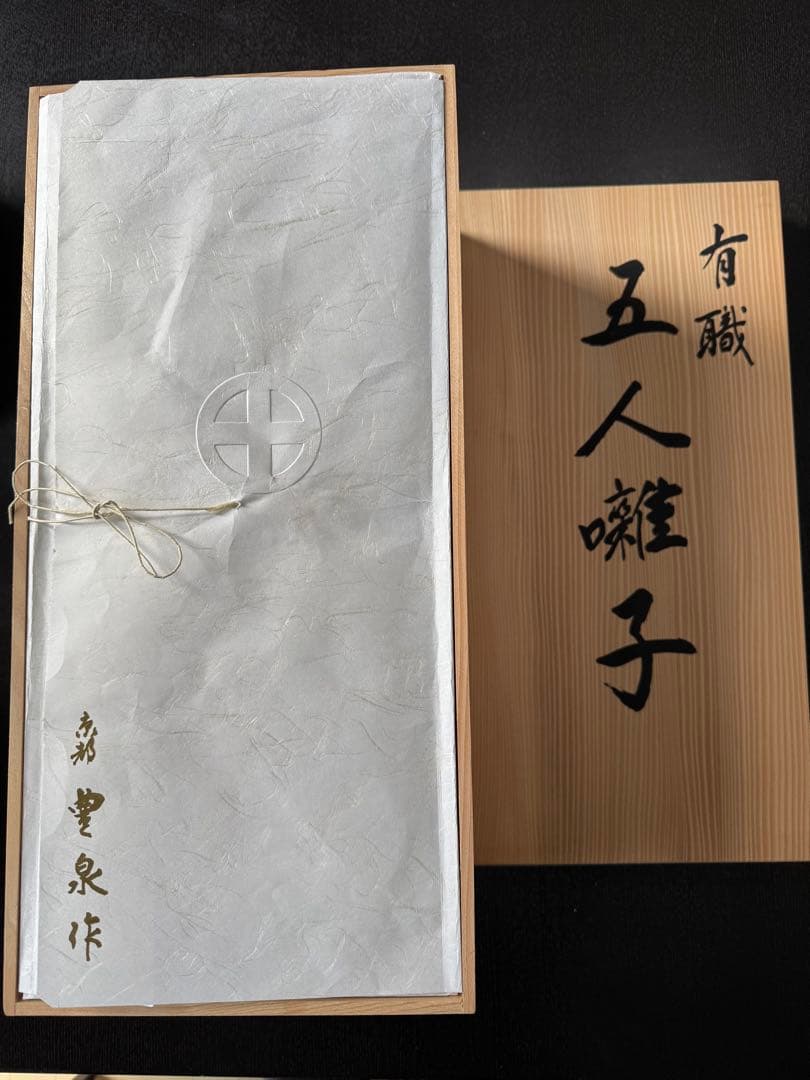 有職
五人囃子
京都 豊泉作